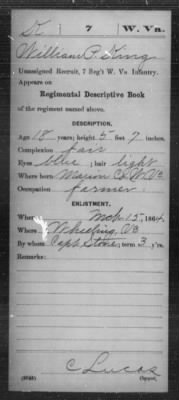 K 7 W. Va.
William P. King
Unassigned Recruit, 7 Reg't W. Va. Infantry.
Appears on
Regimental Descriptive Book
of the regiment named above.
DESCRIPTION.
Age 18 years; height 5 feet 7 inches.
Complexion fair
Eyes blue; hair light
Where born Marion Co. W. Va
Occupation farmer
ENLISTMENT.
When Mch 15, 1864.
Where Wheeling, Va
By whom Capt. Stone; term 3 y'rs.
Remarks:
C Lucas
Copyist.